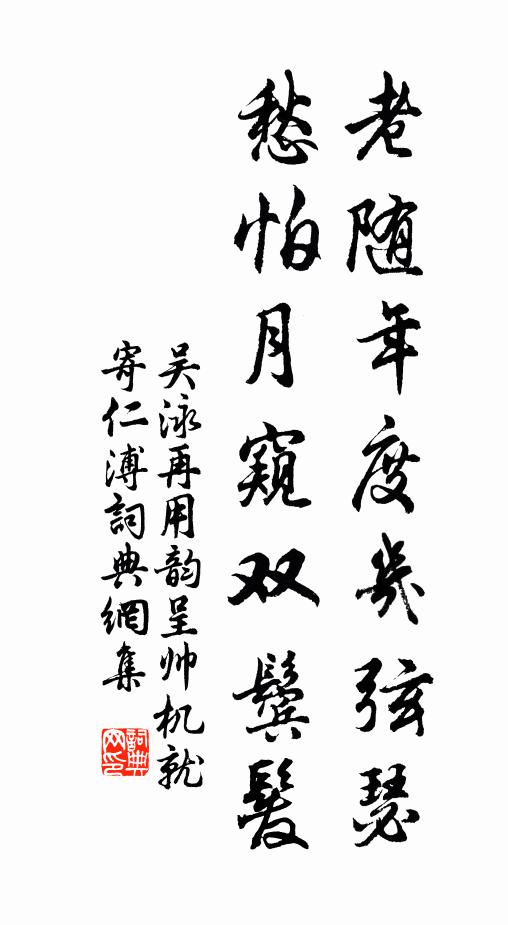 老随年度几弦瑟
愁怕月窥双鬓髮
吴泳再用韵呈帅机就
寄仁溥詞典網集
詞典网印